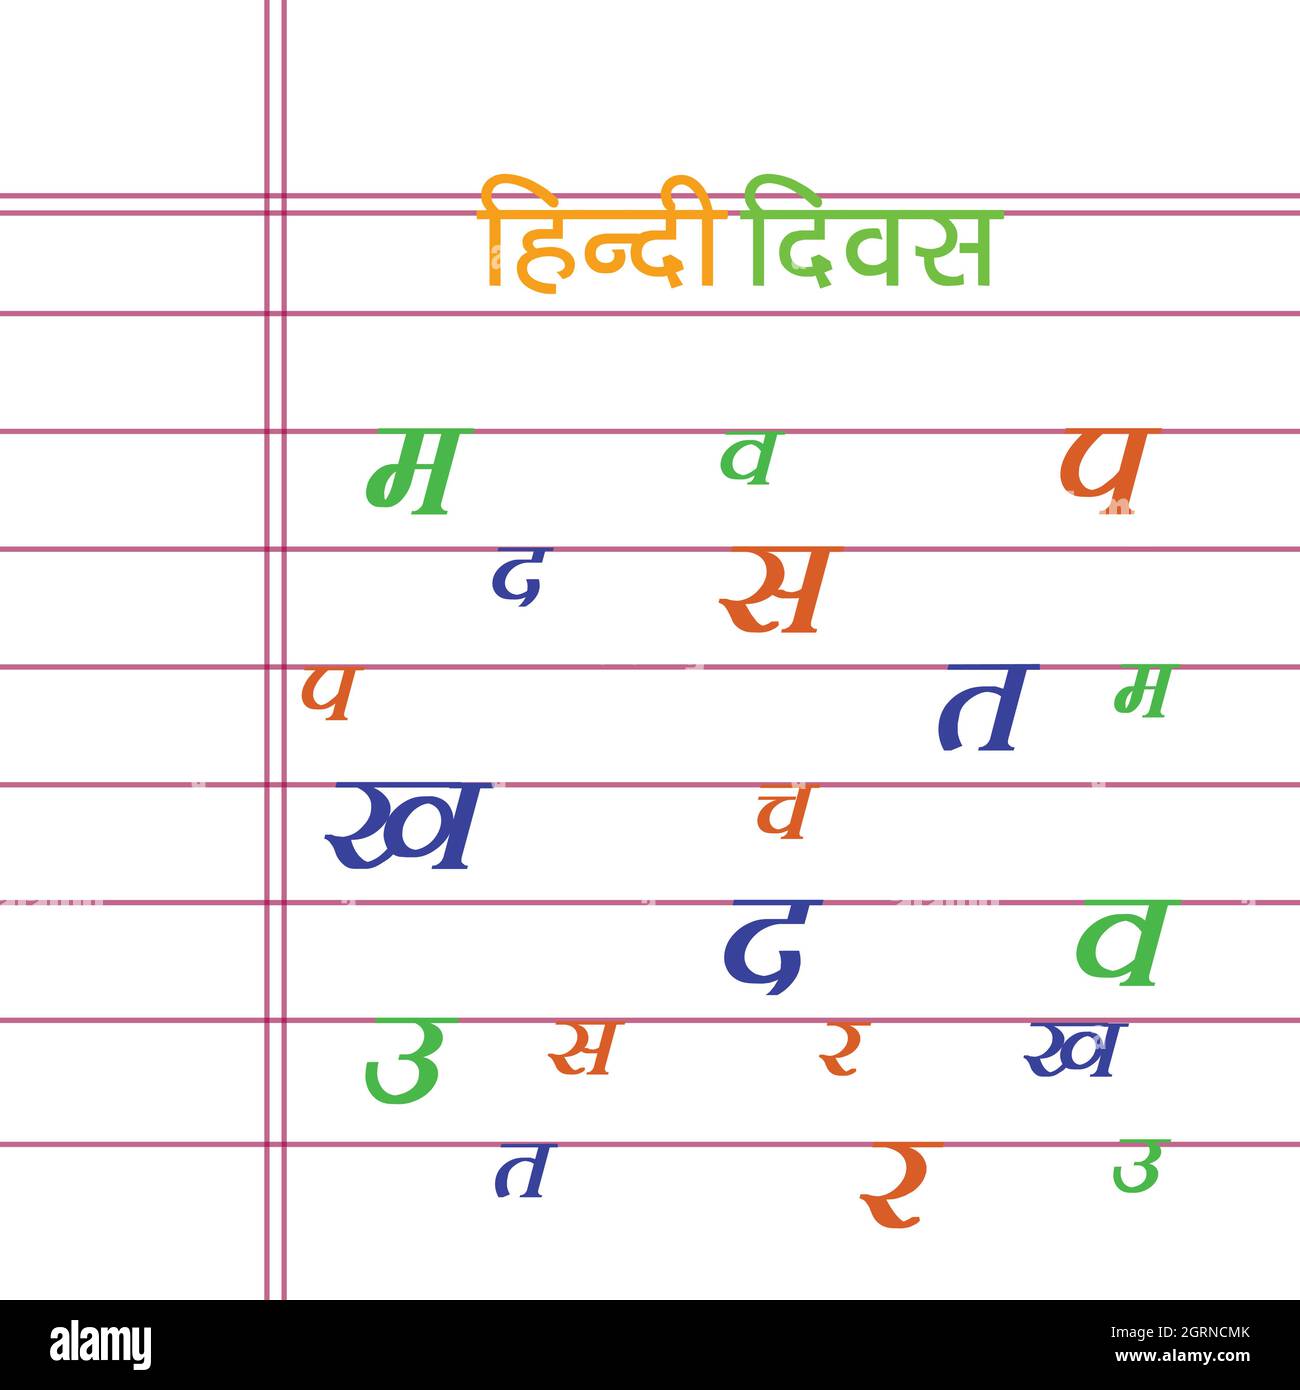 हिन्दी दिवस
म व प
द स
प त म
ख च
द व
उ स र ख
त र उ
alamy
Image ID: 2GRNCMK
www.alamy.com